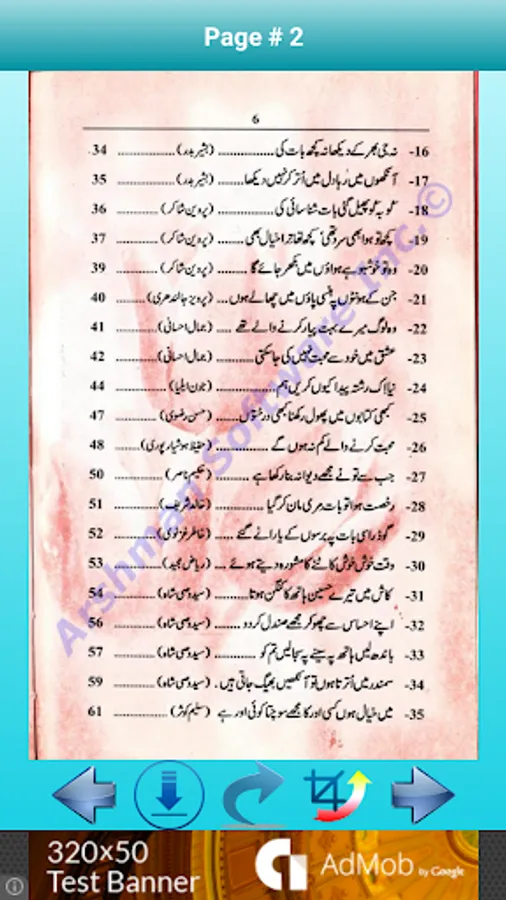 Page # 2
6
16- نہ جی بھر کے دیکھا نہ کچھ بات کی ................ (بشیر بدر) ................ 34
17- آنکھوں میں رہا دل میں اُتر کر نہیں دیکھا ....... (بشیر بدر) ................ 35
18- کُو بہ کُو پھیل گئی بات شناسائی کی ................ (پروین شاکر) ............ 36
19- کچھ تو ہوا بھی سرد تھی، کچھ تھا ترا خیال بھی ......... (پروین شاکر) ............ 37
20- وہ تو خوشبو ہے ہواؤں میں بکھر جائے گا ......... (پروین شاکر) ............ 39
21- جن کے ہونٹوں پہ ہنسی پاؤں میں چھالے ہوں ... (پرویز جالندھری) ......... 40
22- وہ لوگ میرے بہت پیار کرنے والے تھے ..... (جمال احسانی) ............ 41
23- عشق میں خود سے محبت نہیں کی جا سکتی ........... (جمال احسانی) ............ 42
24- نیا اک رشتہ پیدا کیوں کریں ہم ................ (جون ایلیا) ............ 44
25- کبھی کتابوں میں پھول رکھنا کبھی درختوں ...... (حسن رضوی) ............ 47
26- محبت کرنے والے کم نہ ہوں گے ................ (حفیظ ہوشیارپوری) ........ 48
27- جب سے تو نے مجھے دیوانہ بنا رکھا ہے ........ (حکیم ناصر) ............ 50
28- رخصت ہوا تو بات مری مان کر گیا ............. (خالد شریف) ............ 51
29- گو ذرا سی بات پہ برسوں کے یارانے گئے ..... (خاطر غزنوی) ............ 52
30- وقت خوش خوش کاٹنے کا مشورہ دیتے ہوئے ... (ریاض مجید) ............ 53
31- کاش میں تیرے حسین ہاتھ کا کنگن ہوتا ......... (سید وصی شاہ) ............ 54
32- اپنے احساس سے چھو کر مجھے صندل کر دو ....... (سید وصی شاہ) ............ 56
33- باندھ لیں ہاتھ پہ سینے پہ سجا لیں تم کو ............ (سید وصی شاہ) ............ 57
34- سمندر میں اُترتا ہوں تو آنکھیں بھیگ جاتی ہیں . (سید وصی شاہ) ............ 59
35- میں خیال ہوں کسی اور کا مجھے سوچتا کوئی اور ہے (سلیم کوثر) ................ 61
Arshman Software Inc.©
320×50
Test Banner
AdMob by Google